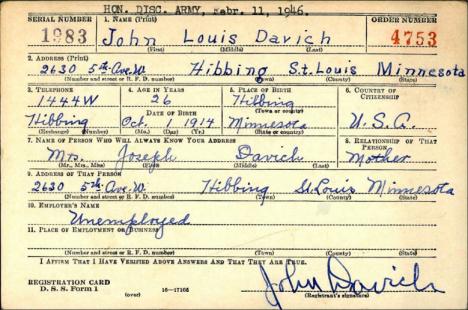 HON. DISC. ARMY, Febr. 11, 1946.
SERIAL NUMBER 1. NAME (Print) ORDER NUMBER
1983 John Louis Davich 4753
(First) (Middle) (Last)
2. ADDRESS (Print)
2630 5th Ave. W. Hibbing St. Louis Minnesota
(Number and street or R. F. D. number) (Town) (County) (State)
3. TELEPHONE 4. AGE IN YEARS 5. PLACE OF BIRTH 6. COUNTRY OF CITIZENSHIP
1444W 26 Hibbing
(Town or county)
DATE OF BIRTH
Hibbing Oct. 1 1914 Minnesota U.S.A.
(Exchange) (Number) (Mo.) (Day) (Yr.) (State or country)
7. NAME OF PERSON WHO WILL ALWAYS KNOW YOUR ADDRESS 8. RELATIONSHIP OF THAT PERSON
Mrs. Joseph Davich Mother
(Mr., Mrs., Miss) (First) (Middle) (Last)
9. ADDRESS OF THAT PERSON
2630 5th Ave. W. Hibbing St. Louis Minnesota
(Number and street or R. F. D. number) (Town) (County) (State)
10. EMPLOYER'S NAME
Unemployed
11. PLACE OF EMPLOYMENT OR BUSINESS
(Number and street or R. F. D. number) (Town) (County) (State)
I AFFIRM THAT I HAVE VERIFIED ABOVE ANSWERS AND THAT THEY ARE TRUE.
REGISTRATION CARD
D. S. S. Form 1 (over) 16—17105
John Davich
(Registrant's signature)